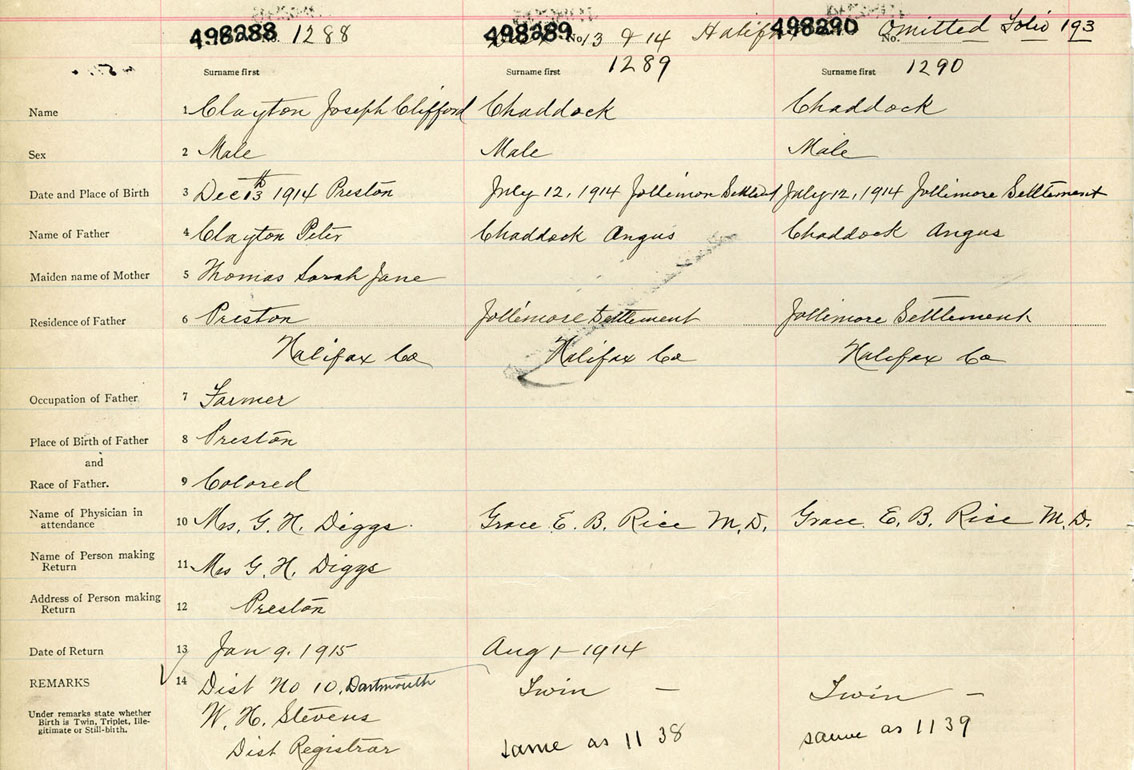 498288 No. 1288 498289 No. 13 & 14 498290 No. Omitted Folio 193
1289 1290
Surname first Surname first Surname first
Name 1 Clayton Joseph Clifford Chaddock Chaddock
Sex 2 Male Male Male
Date and Place of Birth 3 Dec 13th 1914 Preston July 12, 1914 Jollimon Settlement July 12, 1914 Jollimore Settlement
Name of Father 4 Clayton Peter Chaddock Angus Chaddock Angus
Maiden name of Mother 5 Thomas Sarah Jane
Residence of Father 6 Preston Jollimore Settlement Jollimore Settlement
Halifax Co Halifax Co Halifax Co
Occupation of Father 7 Farmer
Place of Birth of Father 8 Preston
and
Race of Father. 9 Colored
Name of Physician in attendance 10 Mrs. G. H. Diggs. Grace. E. B. Rice M.D. Grace. E. B. Rice M.D.
Name of Person making Return 11 Mrs G. H. Diggs
Address of Person making Return 12 Preston
Date of Return 13 Jan 9. 1915 Aug 1 - 1914
REMARKS 14 Dist No 10, Dartmouth Twin - Twin -
Under remarks state whether Birth is Twin, Triplet, Ille-
gitimate or Still-birth.
W. H. Stevens same as 1138 same as 1139
Dist Registrar